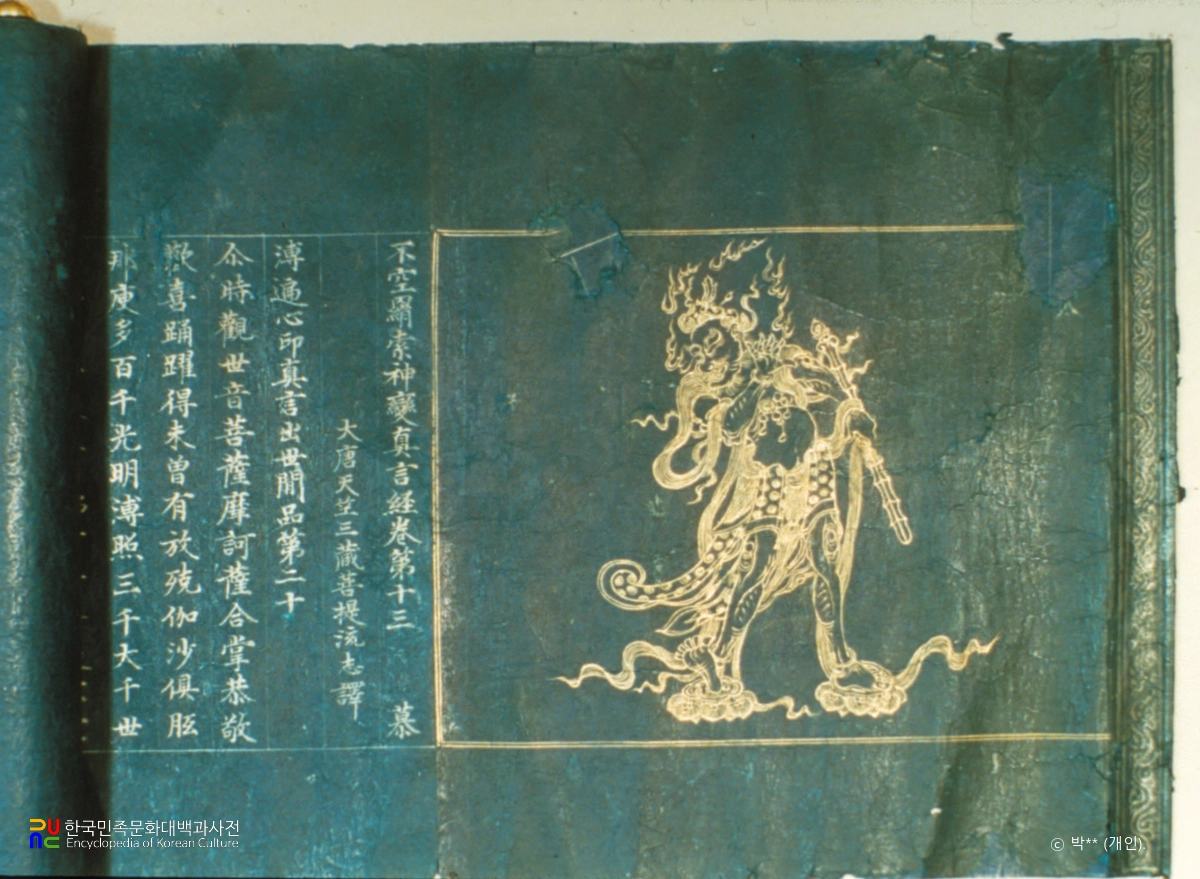 不空羂索神變真言経卷第十三 慕
大唐天竺三藏菩提流志譯
溥遍心印真言出世間品第二十
尒時觀世音菩薩摩訶薩合掌恭敬
歡喜踊躍得未曾有放殑伽沙俱胝
那庾多百千光明溥照三千大千世
한국민족문화대백과사전
Encyclopedia of Korean Culture
ⓒ 박** (개인)